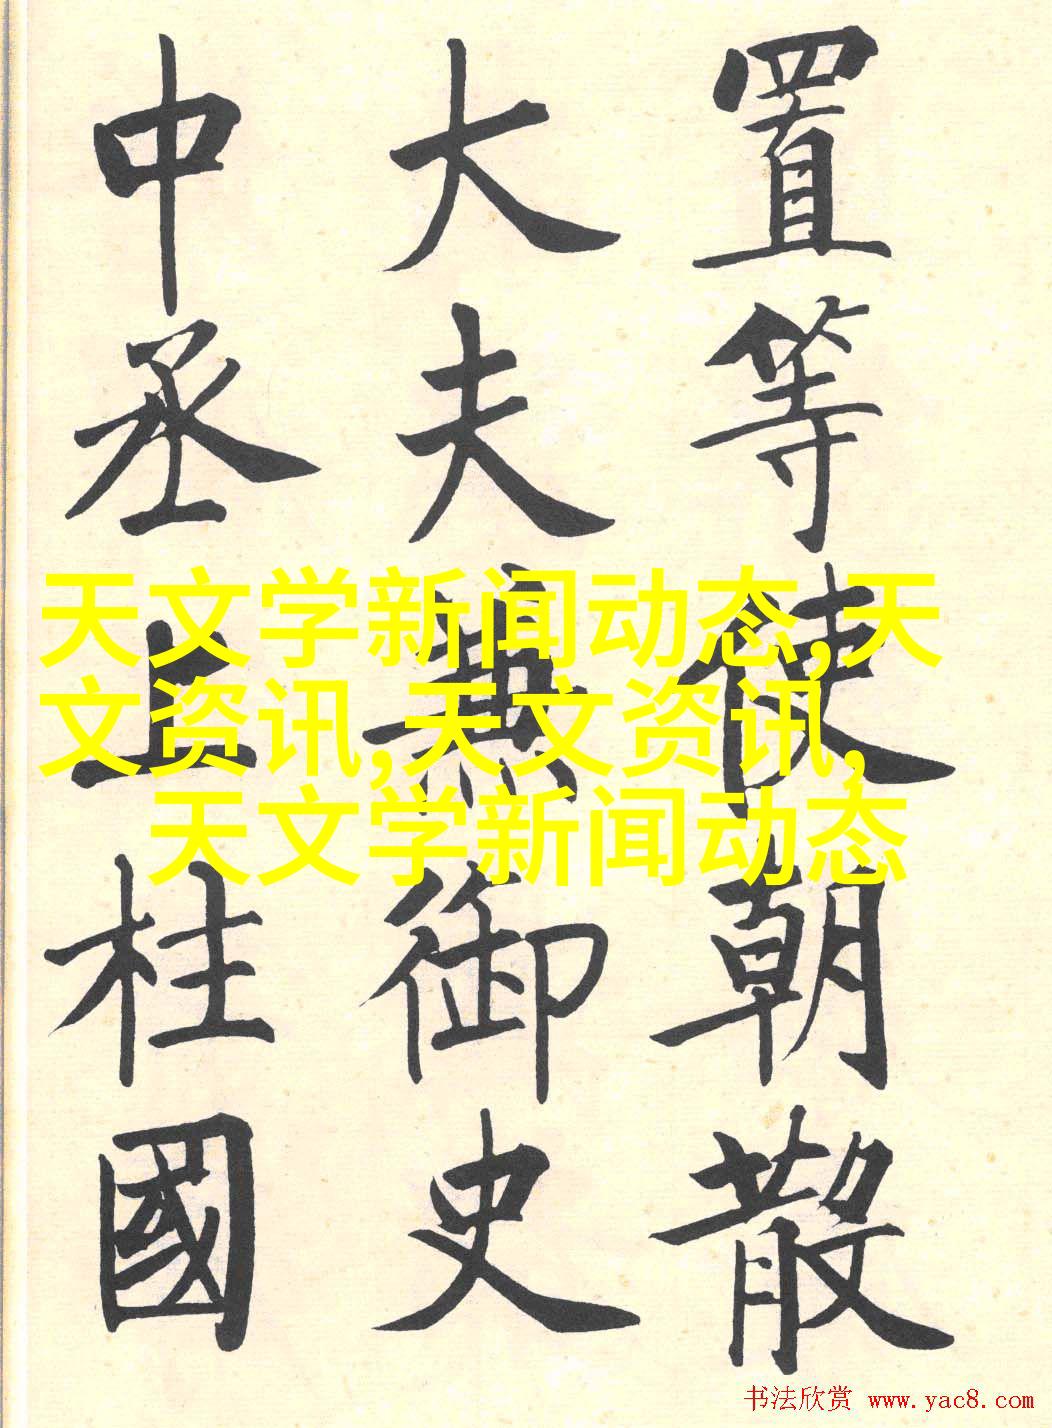 置等使朝散
大夫兼御史
中丞上柱國
天文学新闻动态,天
文资讯,天文资讯,
天文学新闻动态
书法欣赏 www.yac8.com